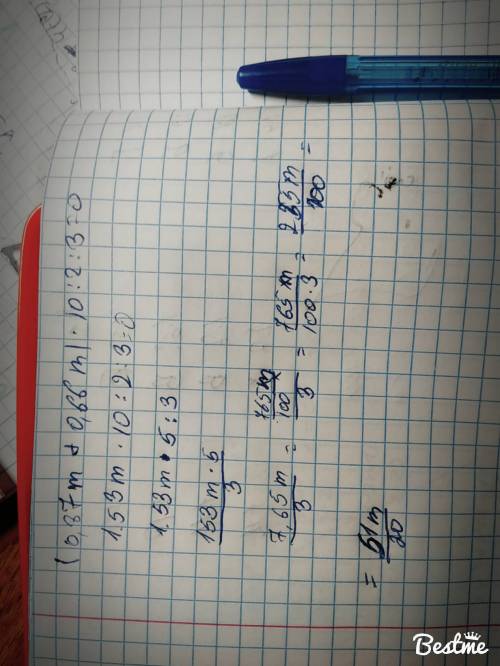 (0,87m + 0,66 m) · 10 : 2 : 3 = 0
1,53m · 10 : 2 : 3 = 0
1,53m · 5 : 3
153m · 5 / 3
7,65m / 3 = 765m/100 / 3 = 765m / 100 · 3 = 253m / 100 =
= 51m / 20
Bestme